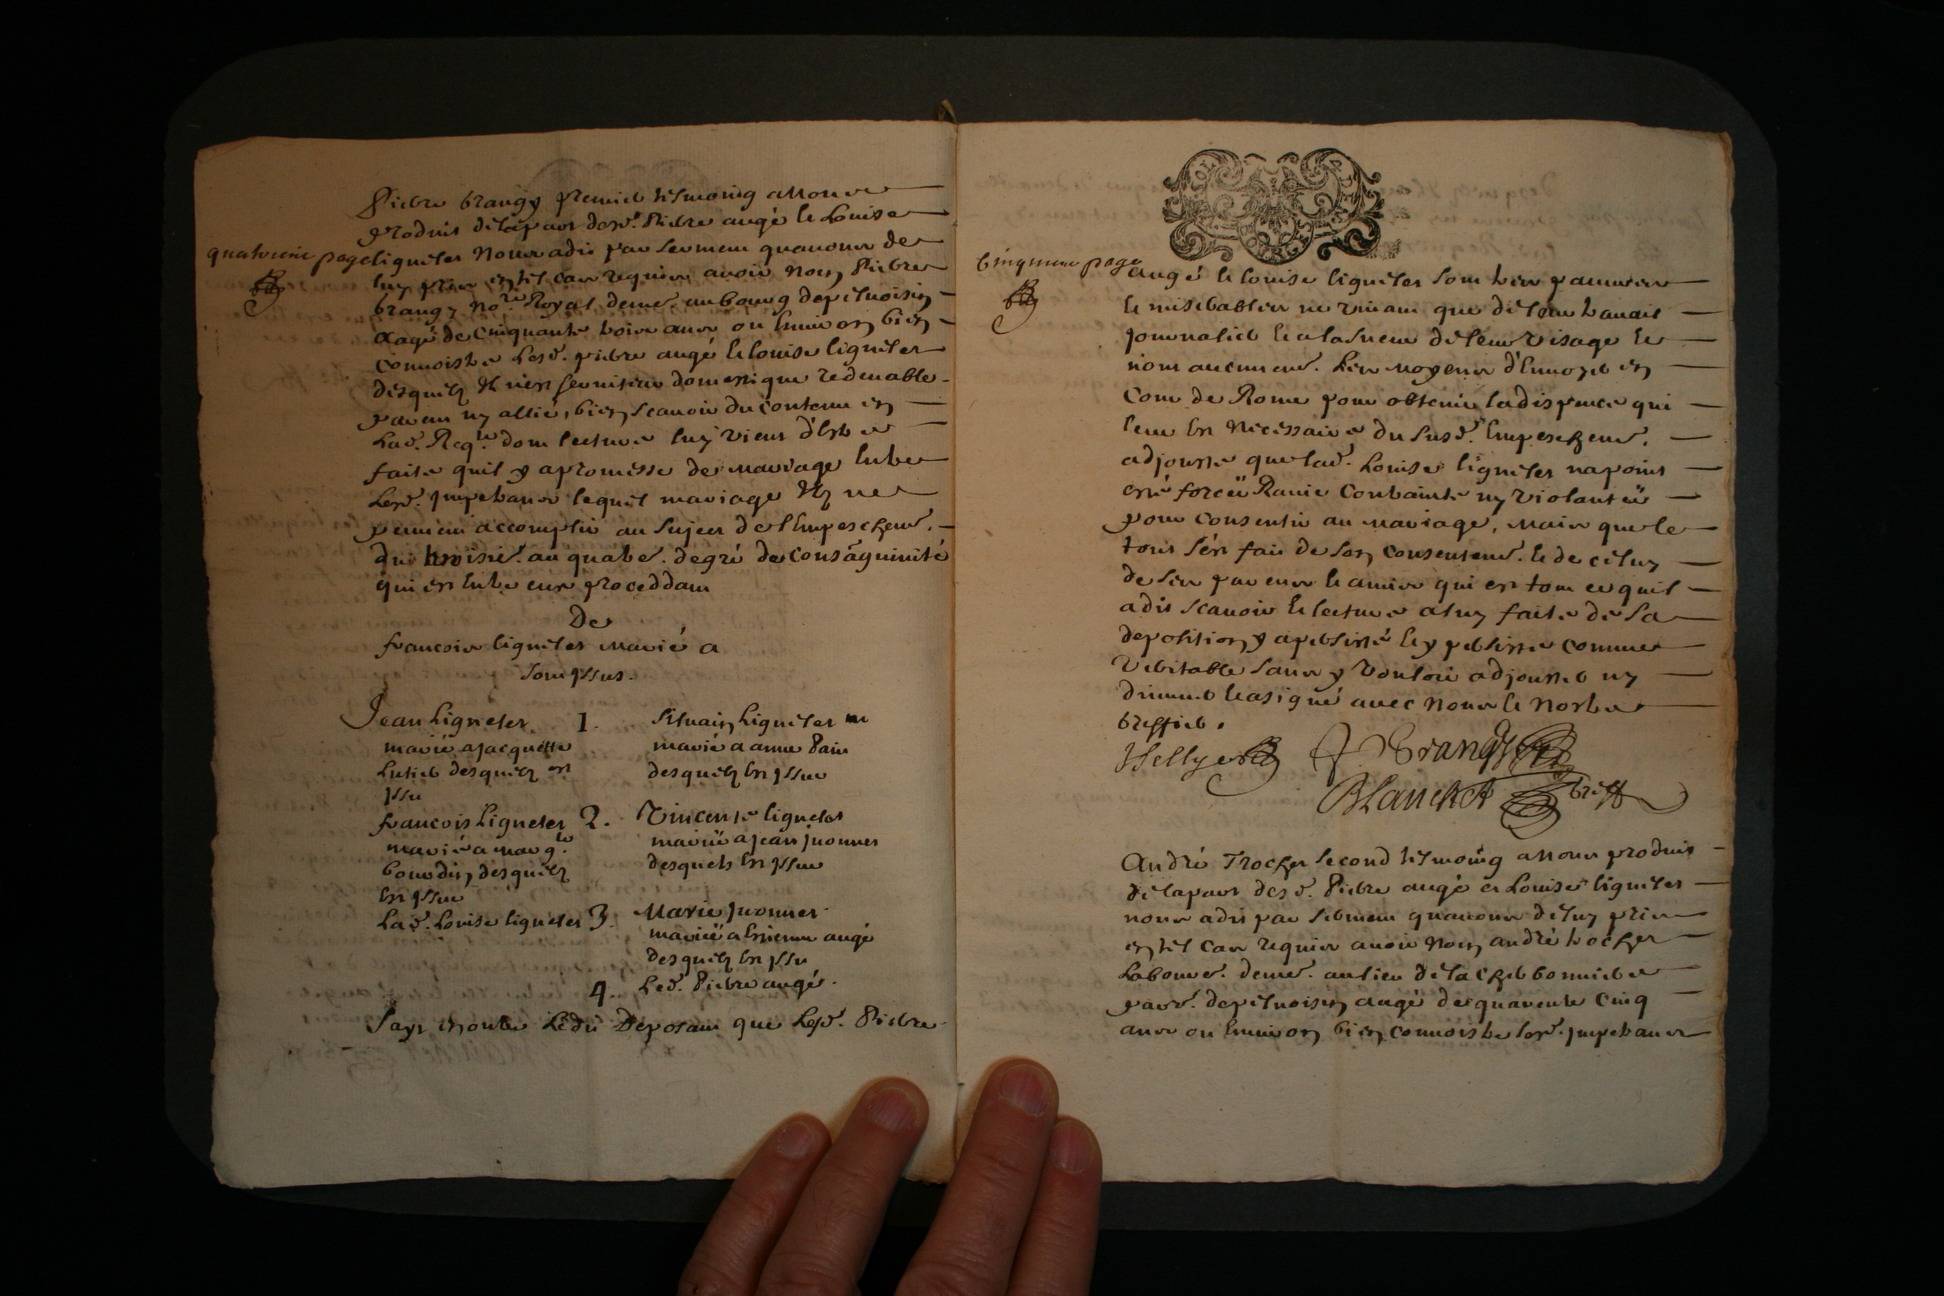 quatriesme page
Pierre brangy premier tesmoing a nous
produit de la part desd. Pierre augé et Louise
lignelet nous a dit par serment quavons de
luy prins en tel cas requis avoir nom Pierre
brangy no.re Royal deme. au bourg de
aagé de Cinquante trois ans ou environ bien
connoistre lesd. pierre augé et louise lignelet
desquelz Il n'est serviteur domestique redevable
parem ny allié, bien scavoir du contenu en
Lad. Reqte. dont lecture luy vient d'estre
faite quil y a promesse de mariage entre
Lesd. Impetrans lequel mariage Ilz ne
peuvent accomplir au sujet de l'Empeschem.
du troisie. au quatre. degré de consãguinité
qui est entre eux proceddant
De
francois lignelet marié a
sont yssus.
Jean Lignelet 1. Silvain Lignelet
marié a Jacquette marié a anne Pain
desquelz est desquelz est yssue
yssu
francois Lignelet 2. Vincente lignelet
marié a marg.te mariée a Jean Juonnet
bourdin, desquelz desquels est yssue
est yssue
Lad. Louise lignelet 3. Marie Juonnet
mariée a Estienne augé
desquelz est yssu
4. Led. Pierre augé.
Says en outre Ledit Deposant que Lesd. Pierre
Cinquiesme page
augé et louise lignelet sont très pauvres
et miserables ne vivant que de leur travail
journalier et a la sueur de leur visage et
n'ont aucunem. Les moyens d'Envoyer en
Cour de Rome pour obtenir la dispence qui
leur est necessaire du susd. Empeschem.
adjouste que lad. Louise lignelet na point
esté forcëe Ravie Contrainte ny violantëe
pour consentir au mariage, mais que le
tout s'est fait de son consentem. et de celuy
de ses parens et amis qui est tout ce quil
a dit scavoir et lecture a luy faite de sa
deposition y a persisté et y persiste comme
veritable sans y vouloir adjouster ny
diminuer et a signé avec nous et Nostre
Greffier.
P. Brangy
Blanchet greff
André Trocher second tesmoing a nous produit
de la part desd. Pierre augé et Louise lignelet
nous a dit par serment quavons de luy prins
en tel cas requis avoir nom andré trocher
Laboure. deme. au lieu de la
parr. de augé de quarente cinq
ans ou environ bien connoistre lesd. Impetrans